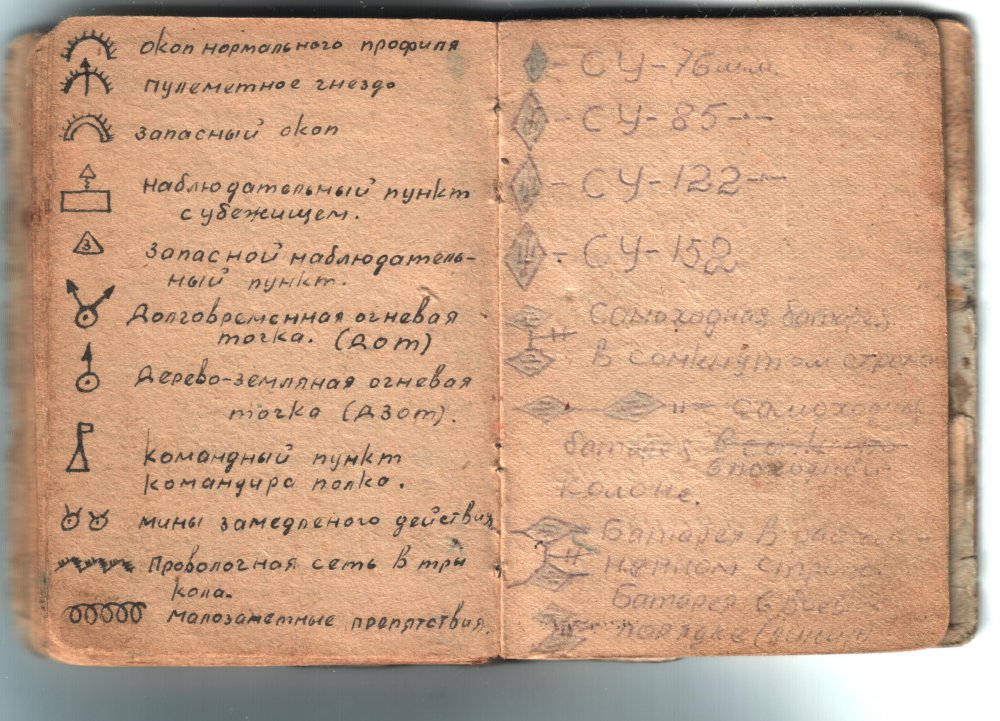 окоп нормального профиля
пулеметное гнездо
запасный окоп
наблюдательный пункт
с убежищем.
3
Запасной наблюдатель-
ный пункт.
Долговременная огневая
точка. (ДОТ)
Дерево-земляная огневая
точка (ДЗОТ).
Командный пункт
командира полка.
мины замедленого действия
Проволочная сеть в три
кола.
малозаметные препятствия.
- СУ-76 мм.
- СУ-85 -·-
- СУ-122 -·-
- СУ-152
Самоходная батарея
в сомкнутом строю
- самоходная
батарея
в походной
колоне.
Батарея в
строю.
Батарея в боев
порядке (линия)